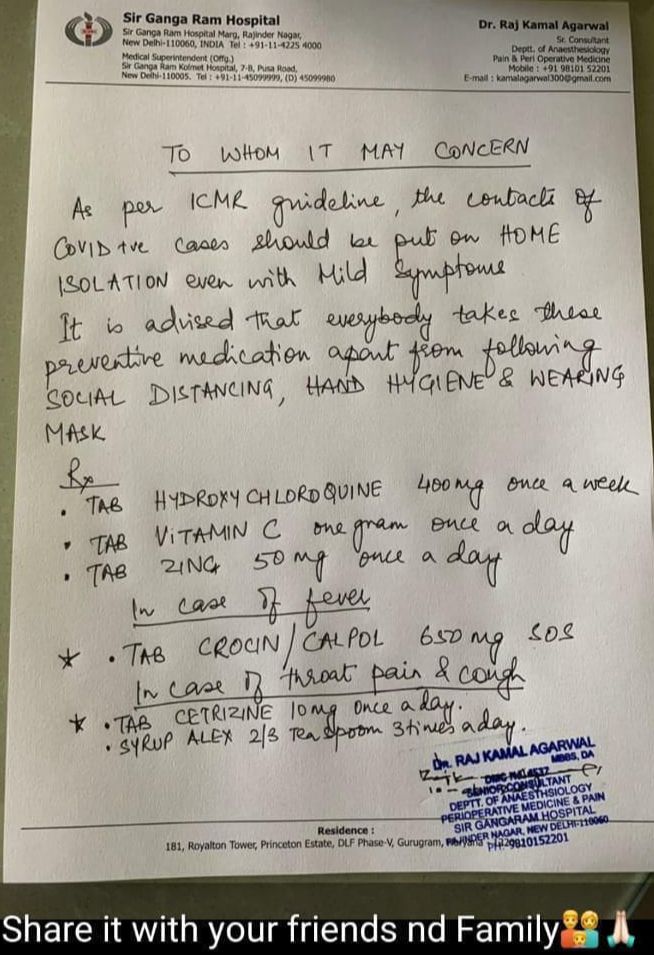 Sir Ganga Ram Hospital
Sir Ganga Ram Hospital Marg, Rajinder Nagar,
New Delhi-110060, INDIA Tel : +91-11-4225 4000
Medical Superintendent (Offg.)
Sir Ganga Ram Kolmet Hospital, 7-B, Pusa Road,
New Delhi-110005. Tel : +91-11-45099999, (D) 45099980
Dr. Raj Kamal Agarwal
Sr. Consultant
Deptt. of Anaesthesiology
Pain & Peri Operative Medicine
Mobile : +91 98101 52201
E-mail : kamalagarwal300@gmail.com
TO WHOM IT MAY CONCERN
As per ICMR guideline, the contacts of
COVID +ve cases should be put on HOME
ISOLATION even with Mild Symptoms
It is advised that everybody takes these
preventive medication apart from following
SOCIAL DISTANCING, HAND HYGIENE & WEARING
MASK
Rx
• TAB HYDROXYCHLOROQUINE 400mg once a week
• TAB VITAMIN C one gram once a day
• TAB ZINC 50 mg once a day
In case of fever
* • TAB CROCIN/CALPOL 650 mg SOS
In case of throat pain & cough
* • TAB CETRIZINE 10mg once a day.
• SYRUP ALEX 2/3 Tea spoom 3times a day.
Dr. RAJ KAMAL AGARWAL
MBBS, DA
SENIOR CONSULTANT
DEPTT. OF ANAESTHSIOLOGY
PERIOPERATIVE MEDICINE & PAIN
SIR GANGARAM HOSPITAL
RAJINDER NAGAR, NEW DELHI-110060
PH:-9810152201
Residence :
181, Royalton Tower, Princeton Estate, DLF Phase-V, Gurugram,
Share it with your friends nd Family👨‍👩‍👦🙏🏻